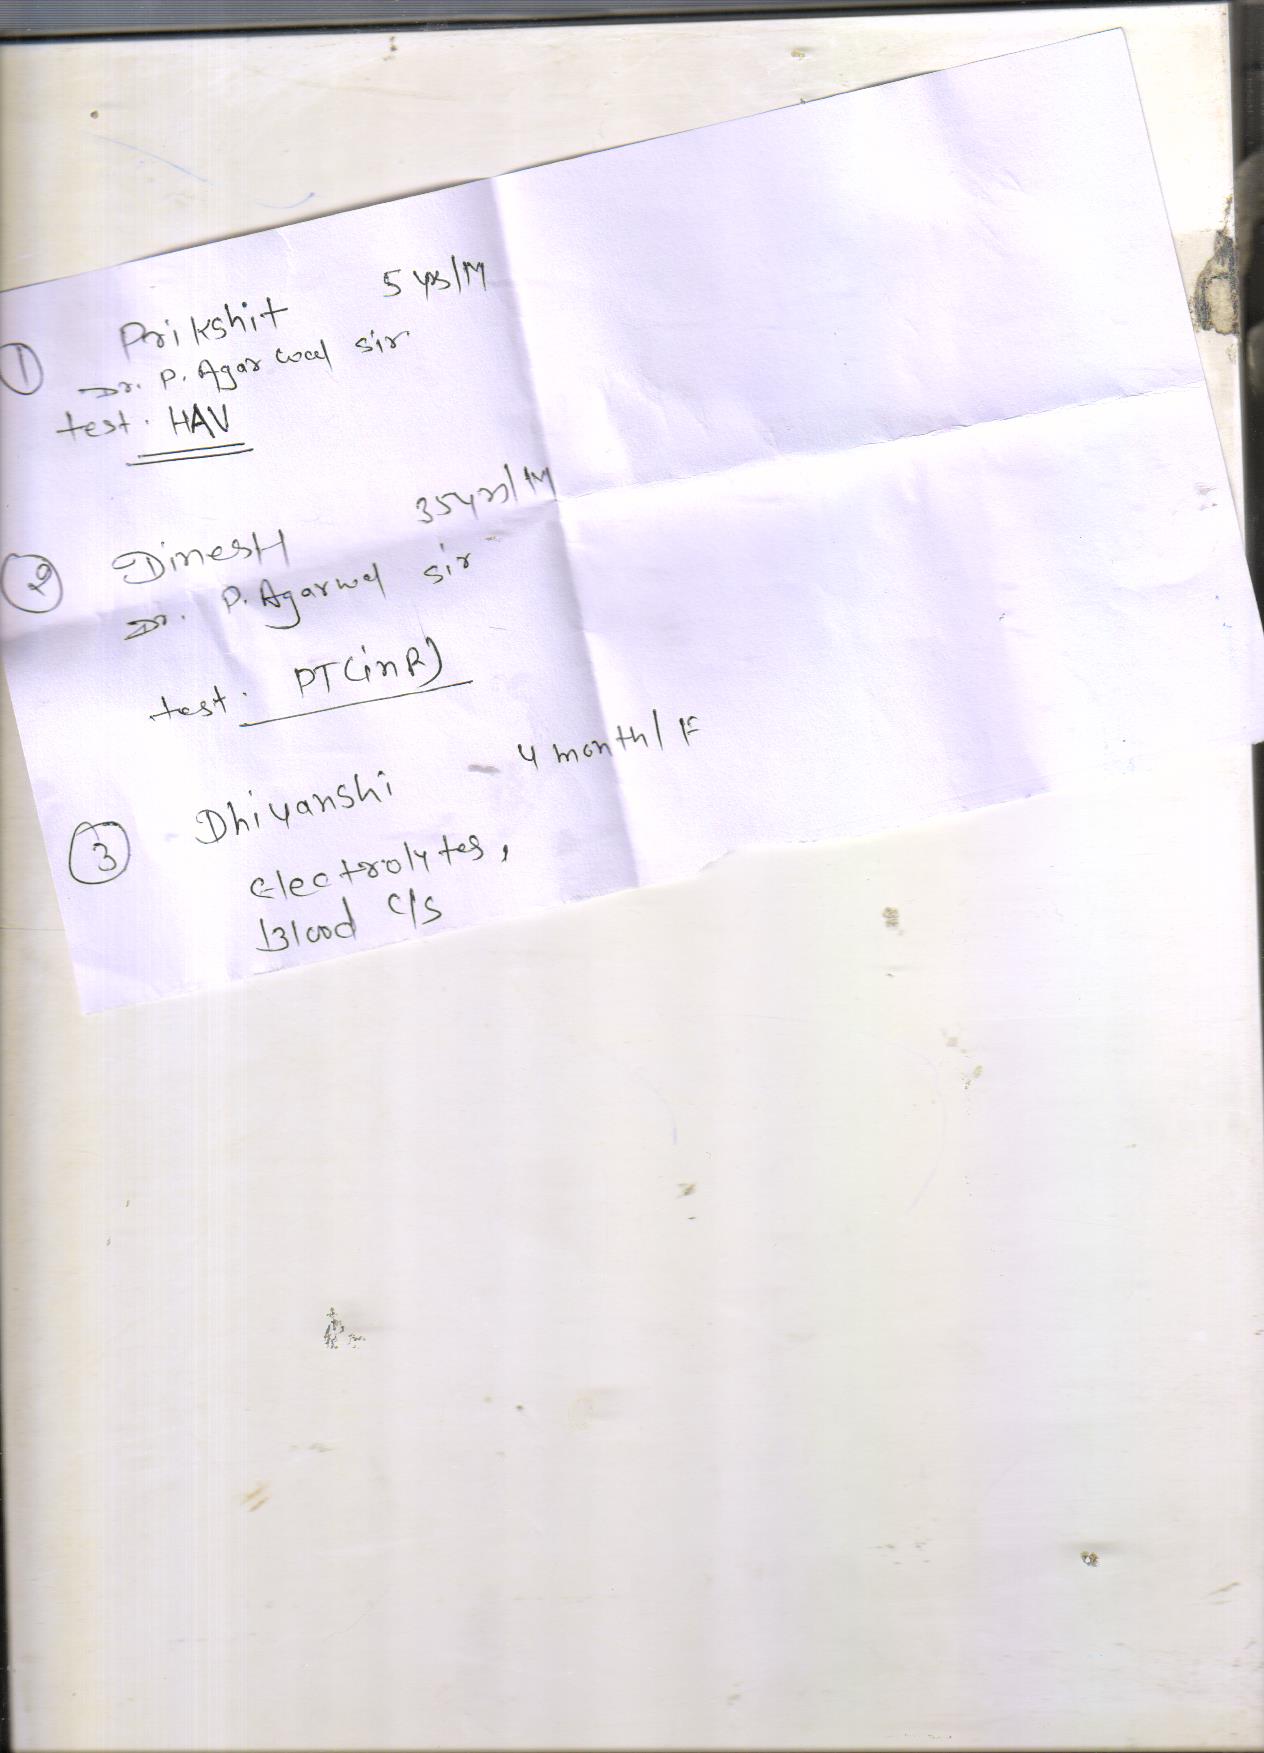 ① Prikshit 5 yrs/M
Dr. P. Agarwal sir
test. HAV
② DinesH 35yrs/M
Dr. P. Agarwal sir
test. PT(inR)
③ Dhiyanshi - 4 month/F
electrolytes,
Blood c/s